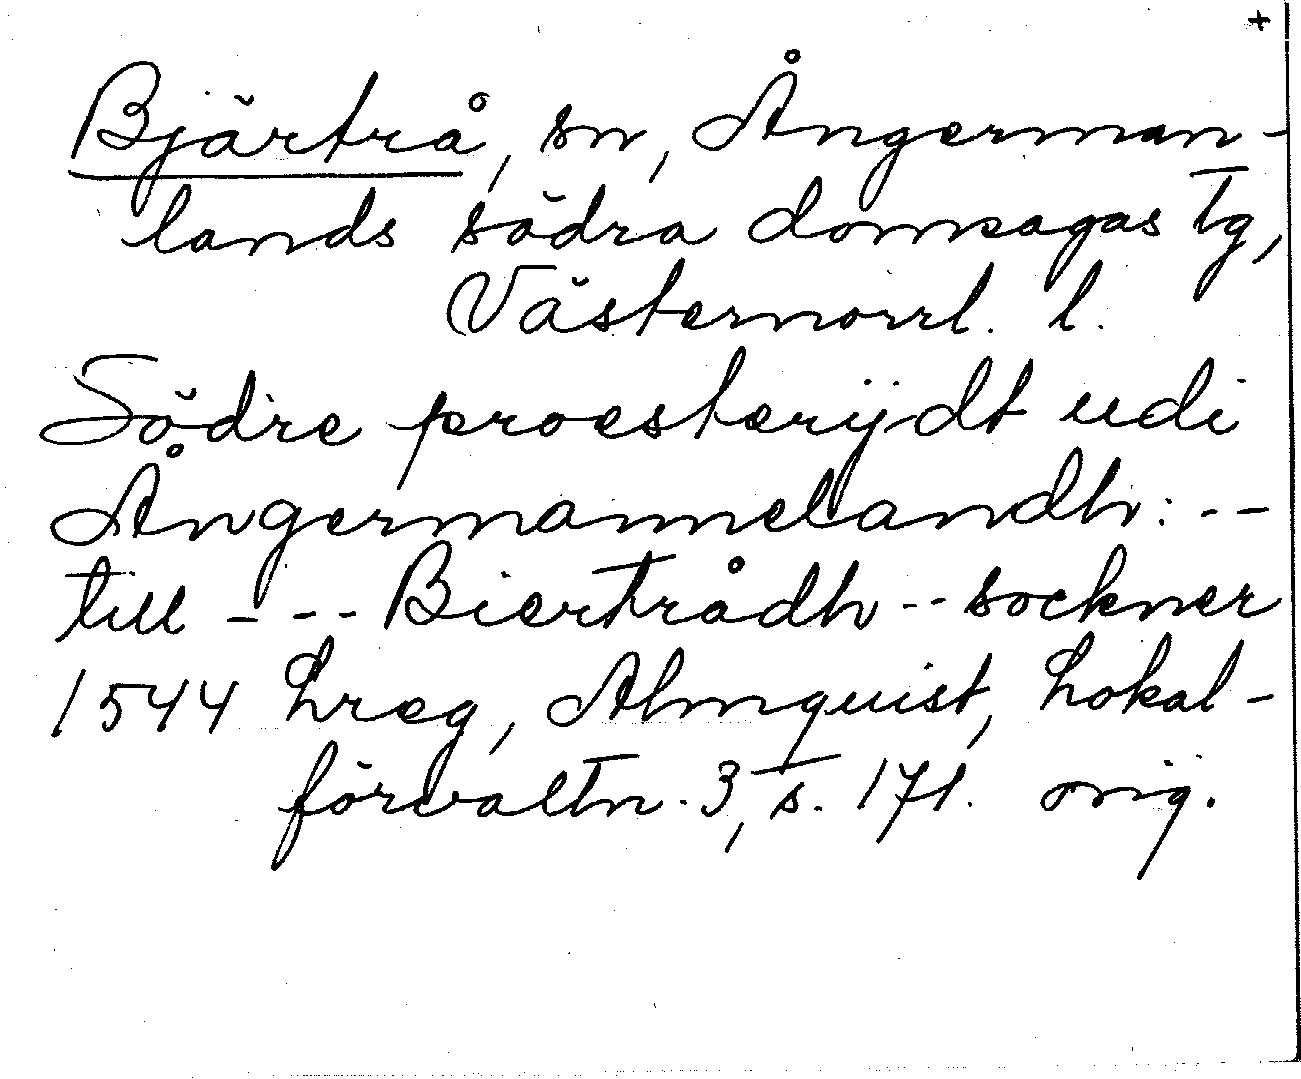 +
Bjärtrå, sn, Ångerman-
lands södra domsagas tg,
Västernorrl. l.
Södre proesterijdt udi
Ångermannelandh: --
till --- Biertrådh -- sockner
1544 Lreg, Almquist, Lokal-
förvaltn. 3, s. 171. orig.